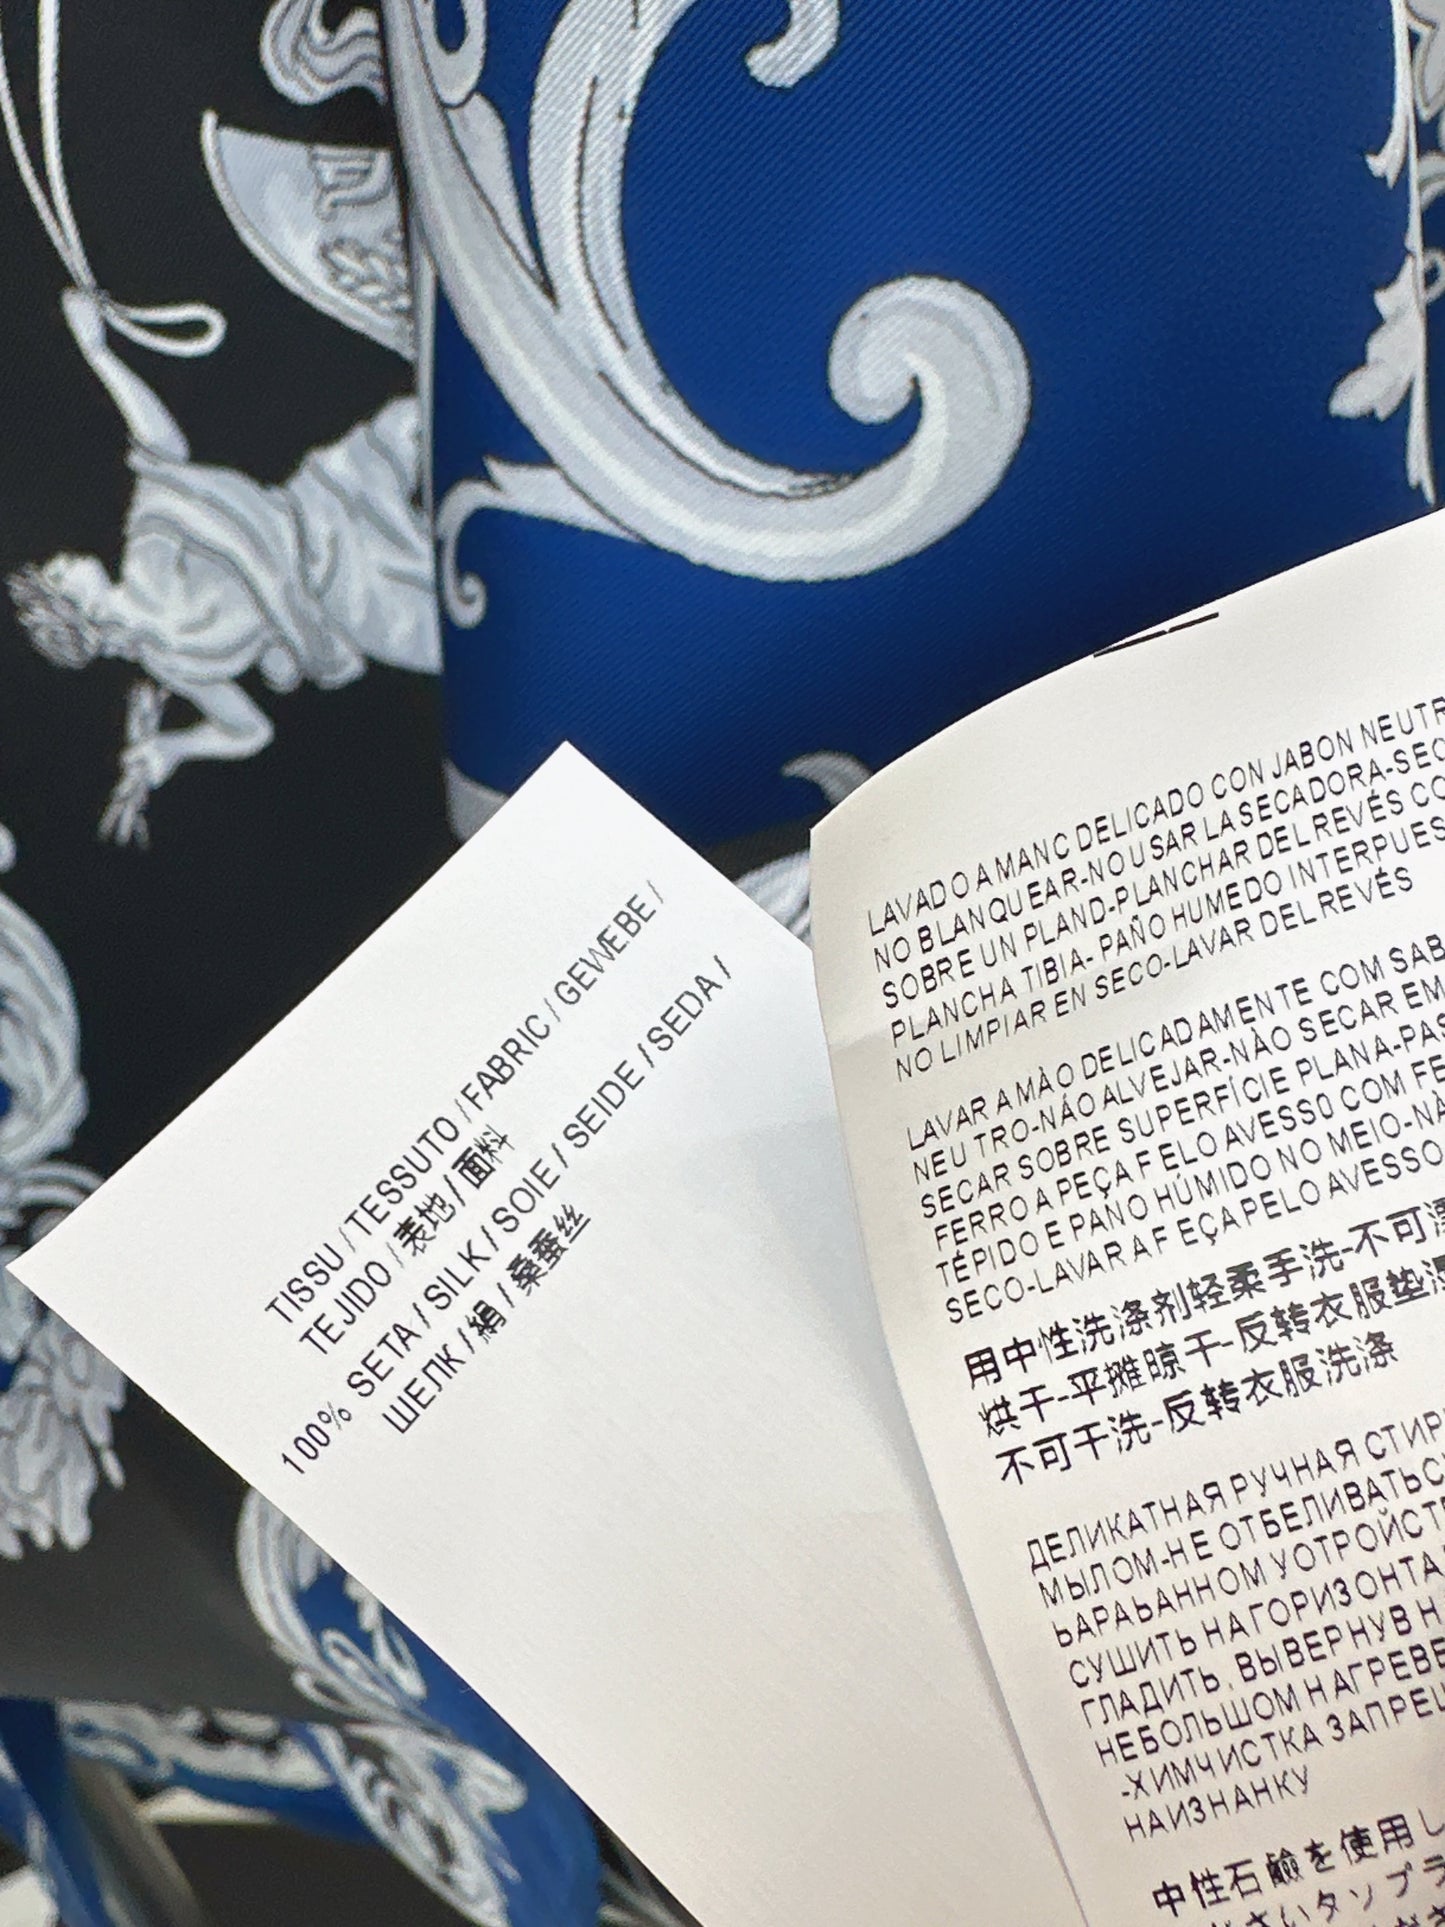 TISSU / TESSUTO / FABRIC / GEWEBE /
TEJIDO / 表地 / 面料
100% SETA / SILK / SOIE / SEIDE / SEDA /
ШЕЛК / 絹 / 桑蚕丝
LAVADO A MANC DELICADO CON JABON NEUTR
NO BLANQUEAR-NO USAR LA SECADORA-SEC
SOBRE UN PLAND-PLANCHAR DEL REVÉS CO
PLANCHA TIBIA- PAÑO HUMEDO INTERPUES
NO LIMPIAR EN SECO-LAVAR DEL REVÉS
LAVAR A MÀO DELICADAMENTE COM SAB
NEU TRO-NÁO ALVEJAR-NÀO SECAR EM
SECAR SOBRE SUPERFÍCIE PLANA-PAS
FERRO A PEÇA F ELO AVESSO COM FE
TÉPIDO E PANO HÚMIDO NO MEIO-NÀ
SECO-LAVAR A F EÇA PELO AVESSO
用中性洗涤剂轻柔手洗-不可漂
烘干-平摊晾干-反转衣服垫湿
不可干洗-反转衣服洗涤
ДЕЛИКАТНАЯ РУЧНАЯ СТИР
МЫЛОМ-НЕ ОТБЕЛИВАТЬС
ЬАРАЬАННОМ УОТРОЙСТ
СУШИТЬ НА ГОРИЗОНТА
ГЛАДИТЬ, ВЫВЕРНУВ Н
НЕБОЛЬШОМ НАГРЕВЕ
-ХИМЧИСТКА ЗАПРЕЩ
НАИЗНАНКУ
中性石鹸を使用し
ださいタンブラ